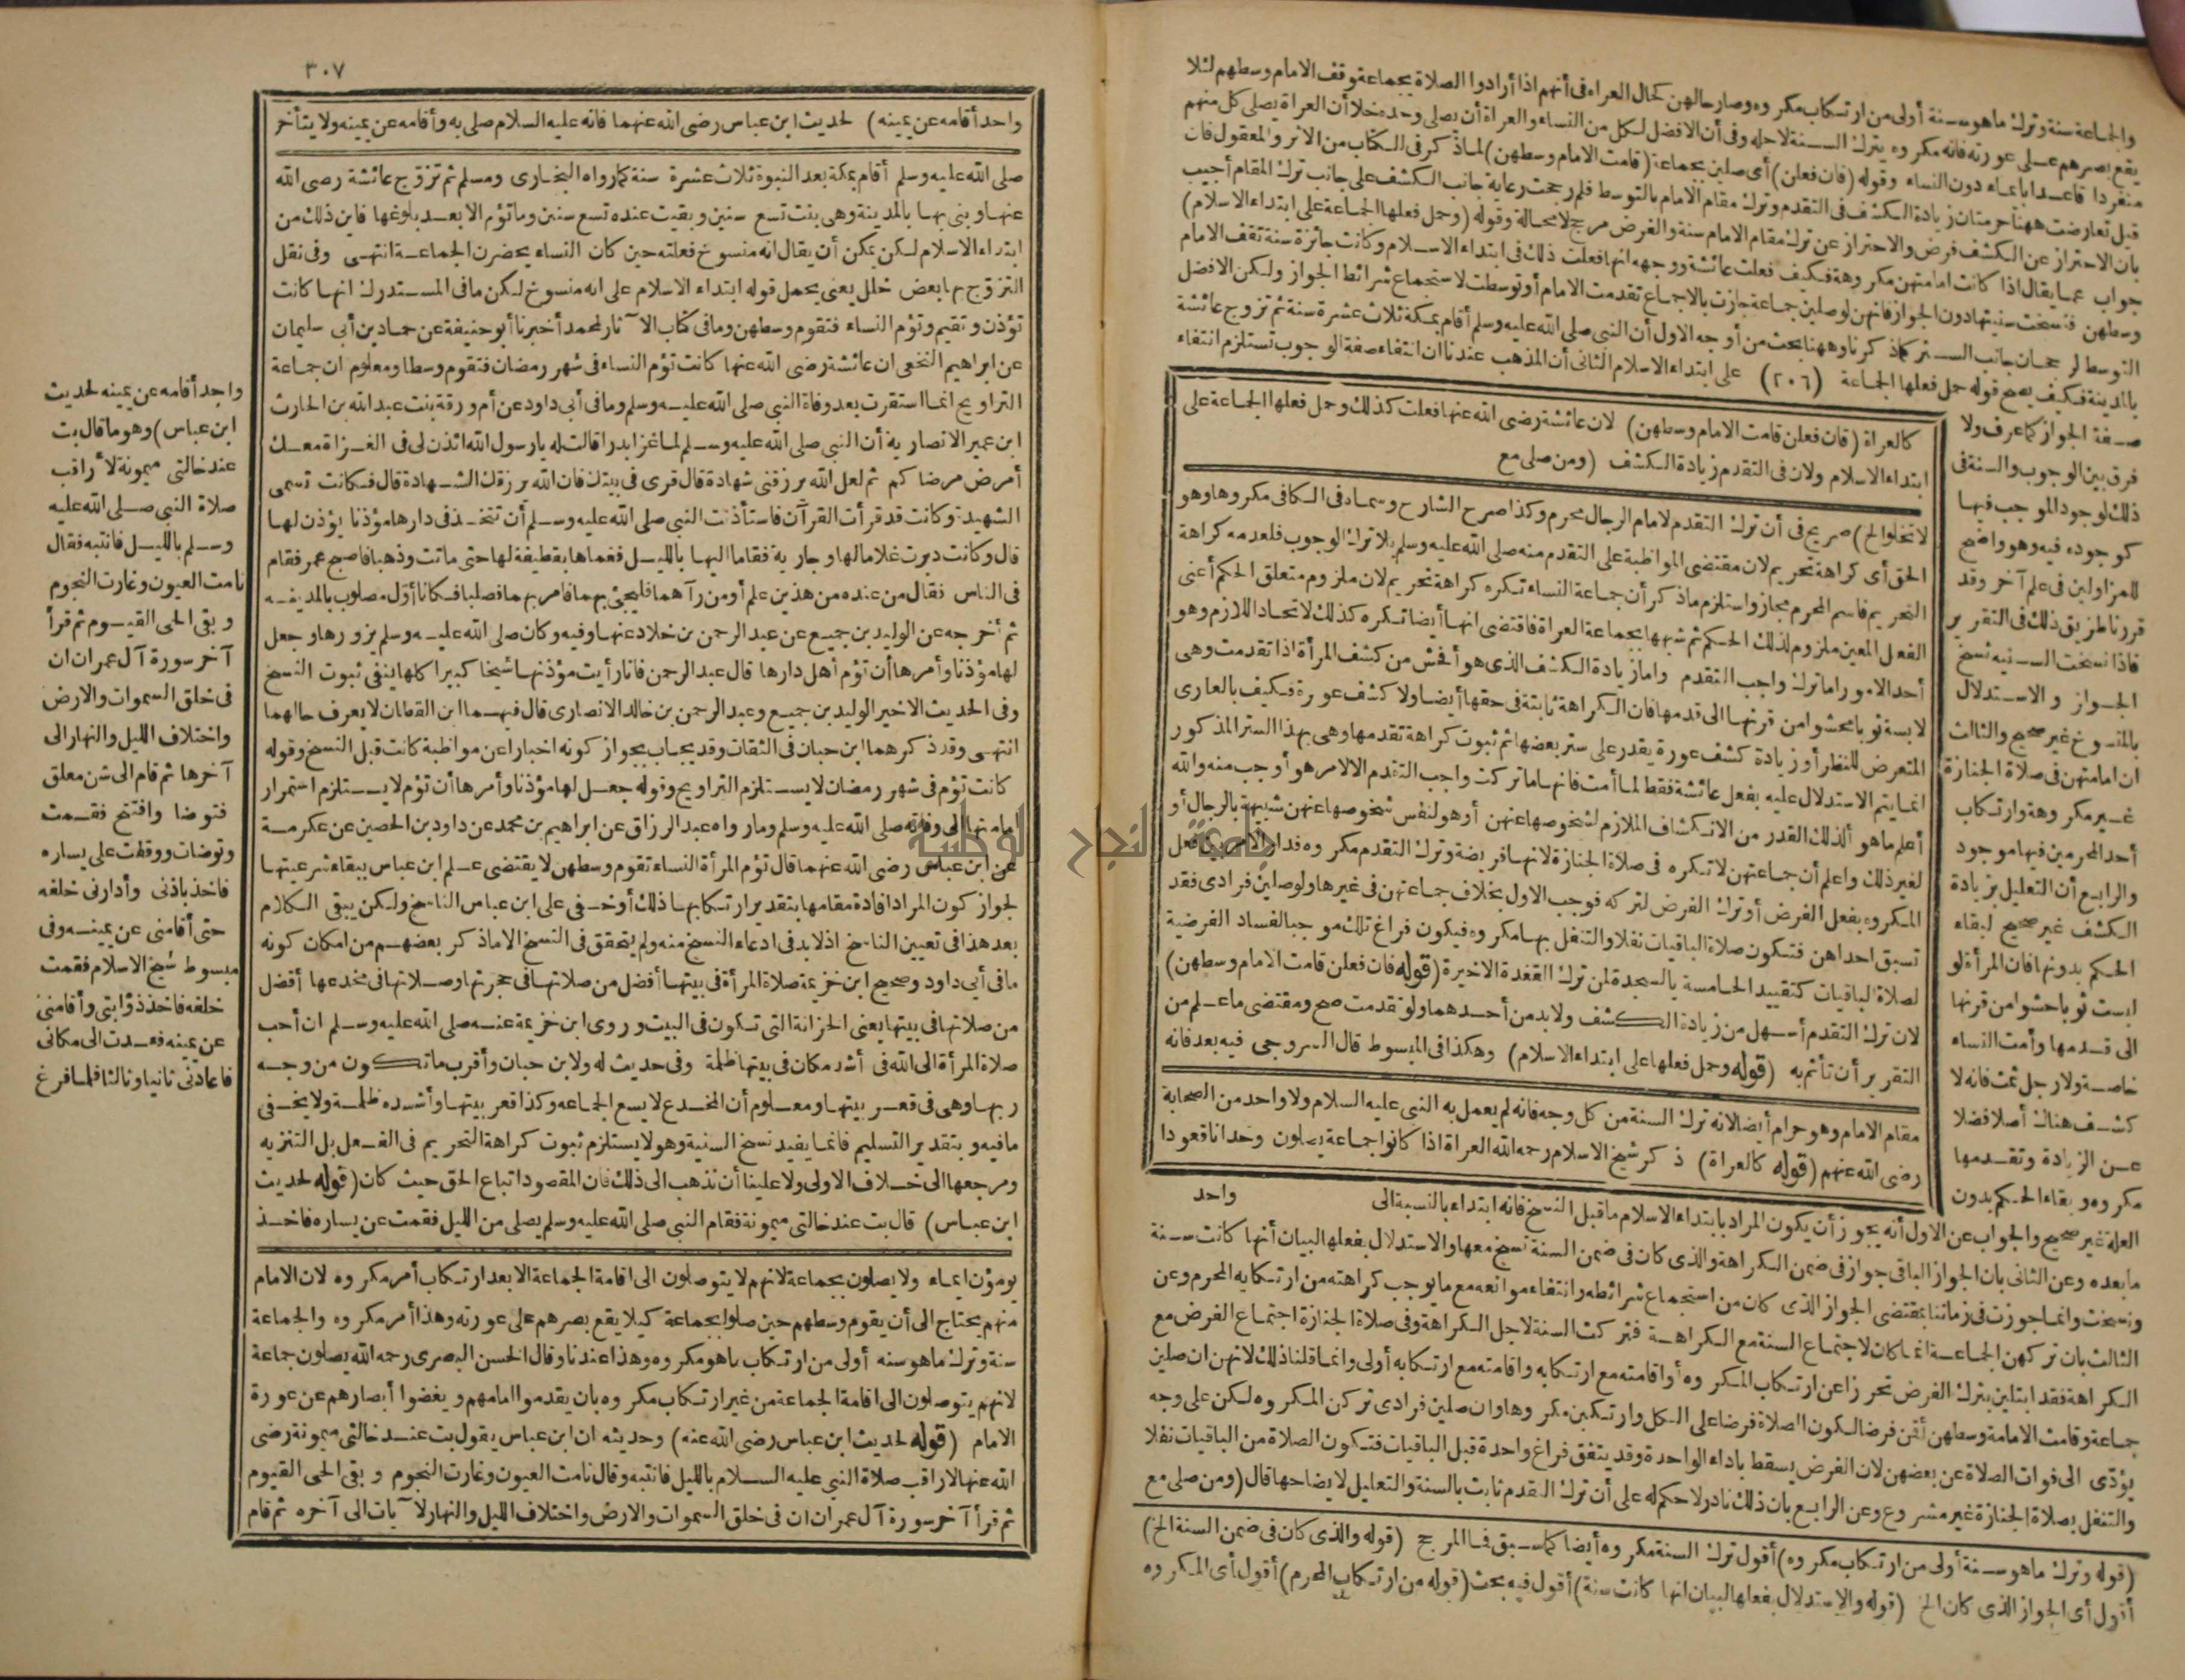 والجماعة سنة وترك ماهو سنة أولى من ارتكاب مكروه وصار حالهن كحال العراة فى أنهم اذا أرادوا الصلاة بجماعة وقف الامام وسطهم لئلا
يقع بصرهم على عورته فانه مكروه يترك السنة لاجله وفى أن الافضل لكل من النساء والعراة أن يصلى وحده خلا أن العراة يصلى كل منهم
منفردا قاعدا بايماء دون النساء وقوله (فان فعلن) أى صلين بجماعة (قامت الامام وسطهن) لماذكر فى الكتاب من الاثر والمعقول فان
قيل تعارضت ههنا حرمتان زيادة الكشف فى التقدم وترك مقام الامام بالتوسط فلم رجحت رعاية جانب الكشف على جانب ترك المقام أجيب
بان الاحتراز عن الكشف فرض والاحتراز عن ترك مقام الامام سنة والفرض مرجح لامحالة وقوله (وحمل فعلها الجماعة على ابتداء الاسلام)
جواب عما يقال اذا كانت امامتهن مكروهة فكيف فعلت عائشة ووجهه انها فعلت ذلك فى ابتداء الاسلام وكانت جائزة سنة تقف الامام
وسطهن فنسخت سنيتها دون الجواز فانهن لوصلين جماعة جازت بالاجماع تقدمت الامام أو توسطت لاستجماع شرائط الجواز ولكن الافضل
التوسط لرجحان جانب الستر كماذكرنا وههنا بحث من أوجه الاول أن النبى صلى الله عليه وسلم أقام بمكة ثلاث عشرة سنة ثم تزوج عائشة
بالمدينة فكيف يصح قوله حمل فعلها الجماعة (٢٠٦) على ابتداء الاسلام الثانى أن المذهب عندنا ان انتفاء صفة الوجوب تستلزم انتفاء
صفة الجواز كما عرف ولا
فرق بين الوجوب والسنة فى
ذلك لوجود الموجب فيها
كوجوده فيه وهو واضح
للمزاولين فى علم آخر وقد
قررنا طريق ذلك فى التقرير
فاذا نسخت السنية نسخ
الجواز والاستدلال
بالمنسوخ غير صحيح والثالث
ان امامتهن فى صلاة الجنازة
غير مكروهة وارتكاب
أحد المحرمين فيها موجود
والرابع أن التعليل بزيادة
الكشف غير صحيح لبقاء
الحكم بدونها فان المرأة لو
لبست ثوبا حشوا من قرنها
الى قدمها وأمت النساء
خاصة ولا رجل ثمت فانه لا
كشف هناك أصلا فضلا
عن الزيادة وتقدمها
مكروه وبقاء الحكم بدون
كالعراة (فان فعلن قامت الامام وسطهن) لان عائشة رضى الله عنها فعلت كذلك وحمل فعلها الجماعة على
ابتداء الاسلام ولان فى التقدم زيادة الكشف (ومن صلى مع
لا تخلوا الخ) صريح فى أن ترك التقدم لامام الرجال محرم وكذا صرح الشارح وسماه فى الكافى مكروها وهو
الحق أى كراهة تحريم لان مقتضى المواظبة على التقدم منه صلى الله عليه وسلم بلا ترك الوجوب فلعدمه كراهة
التحريم فاسم المحرم مجاز واستلزم ماذكر أن جماعة النساء تكره كراهة تحريم لان ملزوم متعلق الحكم أعنى
الفعل المعين ملزوم لذلك الحكم ثم شبهها بجماعة العراة فاقتضى انها أيضا تكره كذلك لاتحاد اللازم وهو
أحد الامور اما ترك واجب التقدم واما زيادة الكشف الذى هو أفحش من كشف المرأة اذا تقدمت وهى
لابسة ثوبا محشوا من قرنها الى قدمها فان الكراهة ثابتة فى حقها أيضا ولا كشف عورة فكيف بالعارى
المتعرض للنظر أو زيادة كشف عورة يقدر على ستر بعضها ثم ثبوت كراهة تقدمها وهى بهذا الستر المذكور
انما يتم الاستدلال عليه بفعل عائشة فقط لما أمت فانها ما تركت واجب التقدم الا لامر هو أوجب منه والله
أعلم ما هو ألذلك القدر من الانكشاف الملازم لشخوصها عنهن أو هو لنفس شخوصها عنهن شبيهة بالرجال أو
لغير ذلك واعلم أن جماعتهن لا تكره فى صلاة الجنازة لانها فريضة وترك التقدم مكروه فدار الامر بين فعل
المكروه بفعل الفرض أو ترك الفرض لتركه فوجب الاول بخلاف جماعتهن فى غيرها ولو صلين فرادى فقد
تسبق احداهن فتكون صلاة الباقيات نفلا والتنفل بها مكروه فيكون فراغ تلك موجبا لفساد الفرضية
لصلاة الباقيات كتقييد الخامسة بالسجدة لمن ترك القعدة الاخيرة (قوله فان فعلن قامت الامام وسطهن)
لان ترك التقدم أسهل من زيادة الكشف ولا بد من أحدهما ولو تقدمت صح ومقتضى ما علم من
التقرير أن تأثم به (قوله وحمل فعلها على ابتداء الاسلام) وهكذا فى المبسوط قال السروجى فيه بعد فانه
مقام الامام وهو حرام أيضا لانه ترك السنة من كل وجه فانه لم يعمل به النبى عليه السلام ولا واحد من الصحابة
رضى الله عنهم (قوله كالعراة) ذكر شيخ الاسلام رحمه الله العراة اذا كانوا جماعة يصلون وحدانا قعودا
العلة غير صحيح والجواب عن الاول أنه يجوز أن يكون المراد بابتداء الاسلام ما قبل النسخ فانه ابتداء بالنسبة الى واحد
ما بعده وعن الثانى بان الجواز الباقى جواز فى ضمن الكراهة والذى كان فى ضمن السنة نسخ معها والاستدلال بفعلها لبيان أنها كانت سنة
ونسخت وانما جوزت فى زماننا بمقتضى الجواز الذى كان من استجماع شرائطه وانتفاء موانعه مع ما يوجب كراهته من ارتكابه المحرم وعن
الثالث بان تركهن الجماعة انما كان لاجتماع السنة مع الكراهة فتركت السنة لاجل الكراهة وفى صلاة الجنازة اجتماع الفرض مع
الكراهة فقد ابتلين بترك الفرض تحرزا عن ارتكاب المكروه أو اقامته مع ارتكابه واقامته مع ارتكابه أولى وانما قلنا ذلك لانهن ان صلين
جماعة وقامت الامامة وسطهن أقن فرضا لكون الصلاة فرضا على الكل وارتكبن مكروها وان صلين فرادى تركن المكروه لكن على وجه
يؤدى الى فوات الصلاة عن بعضهن لان الفرض يسقط باداء الواحدة وقد يتفق فراغ واحدة قبل الباقيات فتكون الصلاة من الباقيات نفلا
والتنفل بصلاة الجنازة غير مشروع وعن الرابع بان ذلك نادر لا حكم له على أن ترك التقدم ثابت بالسنة والتعليل لايضاحها قال (ومن صلى مع
(قوله وترك ماهو سنة أولى من ارتكاب مكروه) أقول ترك السنة مكروه أيضا كما سبق فما المرجح (قوله والذى كان فى ضمن السنة الخ)
أقول أى الجواز الذى كان الخ (قوله والاستدلال بفعلها لبيان انها كانت سنة) أقول فيه بحث (قوله من ارتكاب المحرم) أقول أى المكروه
٣٠٧
واحد أقامه عن يمينه) لحديث ابن عباس رضى الله عنهما فانه عليه السلام صلى به وأقامه عن يمينه ولا يتأخر
صلى الله عليه وسلم أقام بمكة بعد النبوة ثلاث عشرة سنة كما رواه البخارى ومسلم ثم تزوج عائشة رضى الله
عنها وبنى بها بالمدينة وهى بنت تسع سنين وبقيت عنده تسع سنين وما تؤم الا بعد بلوغها فاين ذلك من
ابتداء الاسلام لكن يمكن أن يقال انه منسوخ فعلته حين كان النساء يحضرن الجماعة انتهى وفى نقل
التزوج بها بعض خلل يعنى يحمل قوله ابتداء الاسلام على انه منسوخ لكن ما فى المستدرك انها كانت
تؤذن وتقيم وتؤم النساء فتقوم وسطهن وما فى كتاب الآثار لمحمد أخبرنا أبو حنيفة عن حماد بن أبى سليمان
عن ابراهيم النخعى ان عائشة رضى الله عنها كانت تؤم النساء فى شهر رمضان فتقوم وسطا ومعلوم ان جماعة
التراويح انما استقرت بعد وفاة النبى صلى الله عليه وسلم وما فى أبى داود عن أم ورقة بنت عبد الله بن الحارث
ابن عمير الانصارية أن النبى صلى الله عليه وسلم لما غزا بدرا قالت له يارسول الله ائذن لى فى الغزاة معك
أمرض مرضاكم ثم لعل الله يرزقنى شهادة قال قرى فى بيتك فان الله يرزقك الشهادة قال فكانت تسمى
الشهيدة وكانت قد قرأت القرآن فاستأذنت النبى صلى الله عليه وسلم أن تتخذ فى دارها مؤذنا يؤذن لها
قال وكانت دبرت غلاما لها وجارية فقاما اليها بالليل فغماها بقطيفة لها حتى ماتت وذهبا فاصبح عمر فقام
فى الناس فقال من عنده من هذين علم أو من رآهما فليجئ بهما فامر بهما فصلبا فكانا أول مصلوب بالمدينة
ثم أخرجه عن الوليد بن جميع عن عبد الرحمن بن خلاد عنها وفيه وكان صلى الله عليه وسلم يزورها وجعل
لها مؤذنا وأمرها أن تؤم أهل دارها قال عبد الرحمن فانا رأيت مؤذنها شيخا كبيرا كلها ينفى ثبوت النسخ
وفى الحديث الاخير الوليد بن جميع وعبد الرحمن بن خالد الانصارى قال فيهما ابن القطان لا يعرف حالهما
انتهى وقد ذكرهما ابن حبان فى الثقات وقد يجاب بجواز كونه اخبارا عن مواظبة كانت قبل النسخ وقوله
كانت تؤم فى شهر رمضان لا يستلزم التراويح وقوله جعل لها مؤذنا وأمرها أن تؤم لا يستلزم استمرار
امامتها الى وفاته صلى الله عليه وسلم وما رواه عبد الرزاق عن ابراهيم بن محمد عن داود بن الحصين عن عكرمة
عن ابن عباس رضى الله عنهما قال تؤم المرأة النساء تقوم وسطهن لا يقتضى علم ابن عباس ببقاء شرعيتها
لجواز كون المراد افادة مقامها بتقدير ارتكابها ذلك أو خفى على ابن عباس الناسخ ولكن يبقى الكلام
بعد هذا فى تعيين الناسخ اذ لا بد فى ادعاء النسخ منه ولم يتحقق فى النسخ الا ماذكر بعضهم من امكان كونه
ما فى أبى داود وصحيح ابن خزيمة صلاة المرأة فى بيتها أفضل من صلاتها فى حجرتها وصلاتها فى مخدعها أفضل
من صلاتها فى بيتها يعنى الخزانة التى تكون فى البيت وروى ابن خزيمة عنه صلى الله عليه وسلم ان أحب
صلاة المرأة الى الله فى أشد مكان فى بيتها ظلمة وفى حديث له ولابن حبان وأقرب ما تكون من وجه
ربها وهى فى قعر بيتها ومعلوم أن المخدع لا يسع الجماعه وكذا قعر بيتها وأشده ظلمة ولا يخفى
ما فيه وبتقدير التسليم فانما يفيد نسخ السنية وهو لا يستلزم ثبوت كراهة التحريم فى الفعل بل التنزيه
ومرجعها الى خلاف الاولى ولا علينا أن نذهب الى ذلك فان المقصود اتباع الحق حيث كان (قوله لحديث
ابن عباس) قال بت عند خالتى ميمونة فقام النبى صلى الله عليه وسلم يصلى من الليل فقمت عن يساره فاخذ
يومؤن ايماء ولا يصلون بجماعة لانهم لا يتوصلون الى اقامة الجماعة الا بعد ارتكاب أمر مكروه لان الامام
منهم يحتاج الى أن يقوم وسطهم حين صلوا بجماعة كيلا يقع بصرهم على عورته وهذا أمر مكروه والجماعة
سنة وترك ماهو سنه أولى من ارتكاب ماهو مكروه وهذا عندنا وقال الحسن البصرى رحمه الله يصلون جماعة
لانهم يتوصلون الى اقامة الجماعة من غير ارتكاب مكروه بان يقدموا امامهم ويغضوا أبصارهم عن عورة
الامام (قوله لحديث ابن عباس رضى الله عنه) وحديثه ان ابن عباس يقول بت عند خالتى ميمونة رضى
الله عنها لاراقب صلاة النبى عليه السلام بالليل فانتبه وقال نامت العيون وغارت النجوم وبقى الحى القيوم
ثم قرأ آخر سورة آل عمران ان فى خلق السموات والارض واختلاف الليل والنهار لآيات الى آخره ثم قام
واحد أقامه عن يمينه لحديث
ابن عباس) وهو ما قال بت
عند خالتى ميمونة لأراقب
صلاة النبى صلى الله عليه
وسلم بالليل فانتبه فقال
نامت العيون وغارت النجوم
وبقى الحى القيوم ثم قرأ
آخر سورة آل عمران ان
فى خلق السموات والارض
واختلاف الليل والنهار الى
آخرها ثم قام الى شن معلق
فتوضا وافتتح فقمت
وتوضات ووقفت على يساره
فاخذ باذنى وأدارنى خلفه
حتى أقامنى عن يمينه وفى
مبسوط شيخ الاسلام فقمت
خلفه فاخذ ذؤابتى وأقامنى
عن يمينه فعدت الى مكانى
فاعادنى ثانيا وثالثا فلما فرغ
جامعة النجاح الوطنية